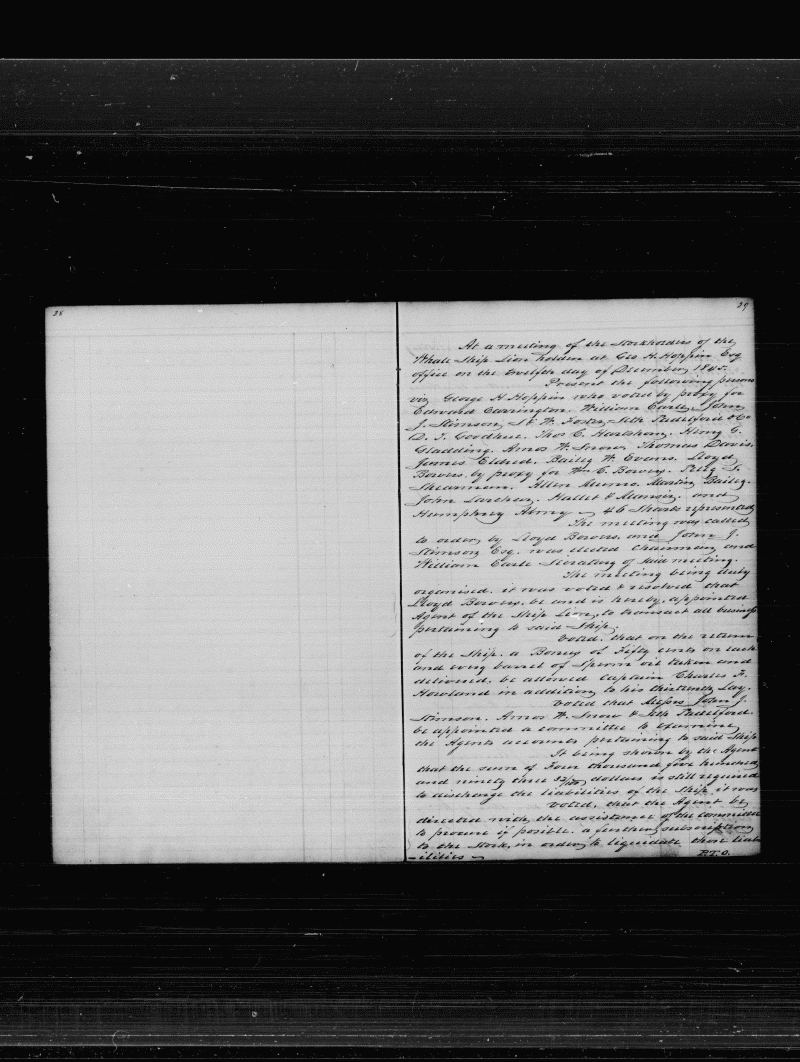 28
29
At a meeting of the Stockholders of the
Whale Ship Lion holden at Geo H. Hoppin Esq
office on the twelfth day of December, 1845.
Present the following persons
viz George H. Hoppin who voted by proxy for
Edward Carrington. William Earle, John
J. Stimson, S. W. Foster, Seth Padelford & Co
D. T. Goodhue. Thos C. Hartshorn. Henry G.
Gladding. Amos W. Snow, Thomas Davis.
James Eldred. Bailey W. Evans. Lloyd
Bowers, by proxy for Wm C. Bowers.
Shearman. Allen Munro. Martin Bailey.
John Larcher. Hallet & and
Humphrey Almy 46 Shares represented
The meeting was called
to order, by Lloyd Bowers and John J.
Stimson Esq. was elected Chairman, and
William Earle Secretary of said meeting.
The meeting being duly
organised, it was voted & resolved that
Lloyd Bowers, be and is hereby, appointed
Agent of the Ship Lion, to transact all business
pertaining to said Ship.
Voted. that on the return
of the Ship. a Bonus of Fifty cents on each
and every barrel of Sperm oil taken and
delivered. be allowed Captain Charles F.
Howland in addition, to his thirteenth Lay.
Voted that Messrs John J.
Stimson. Amos W. Snow & Seth Padelford
be appointed a committee to examine
the Agents accounts pertaining to said Ship
It being shown by the Agent
that the sum of Four thousand five hundred
and ninety three 32/100 dollars is still required
to discharge the liabilities of the Ship. it was
voted, that the Agent be,
directed with, the assistance of the committee
to procure if posible. a further, subscription
to the Stock, in order, to liquidate those liab
-ilities
P.T.O.